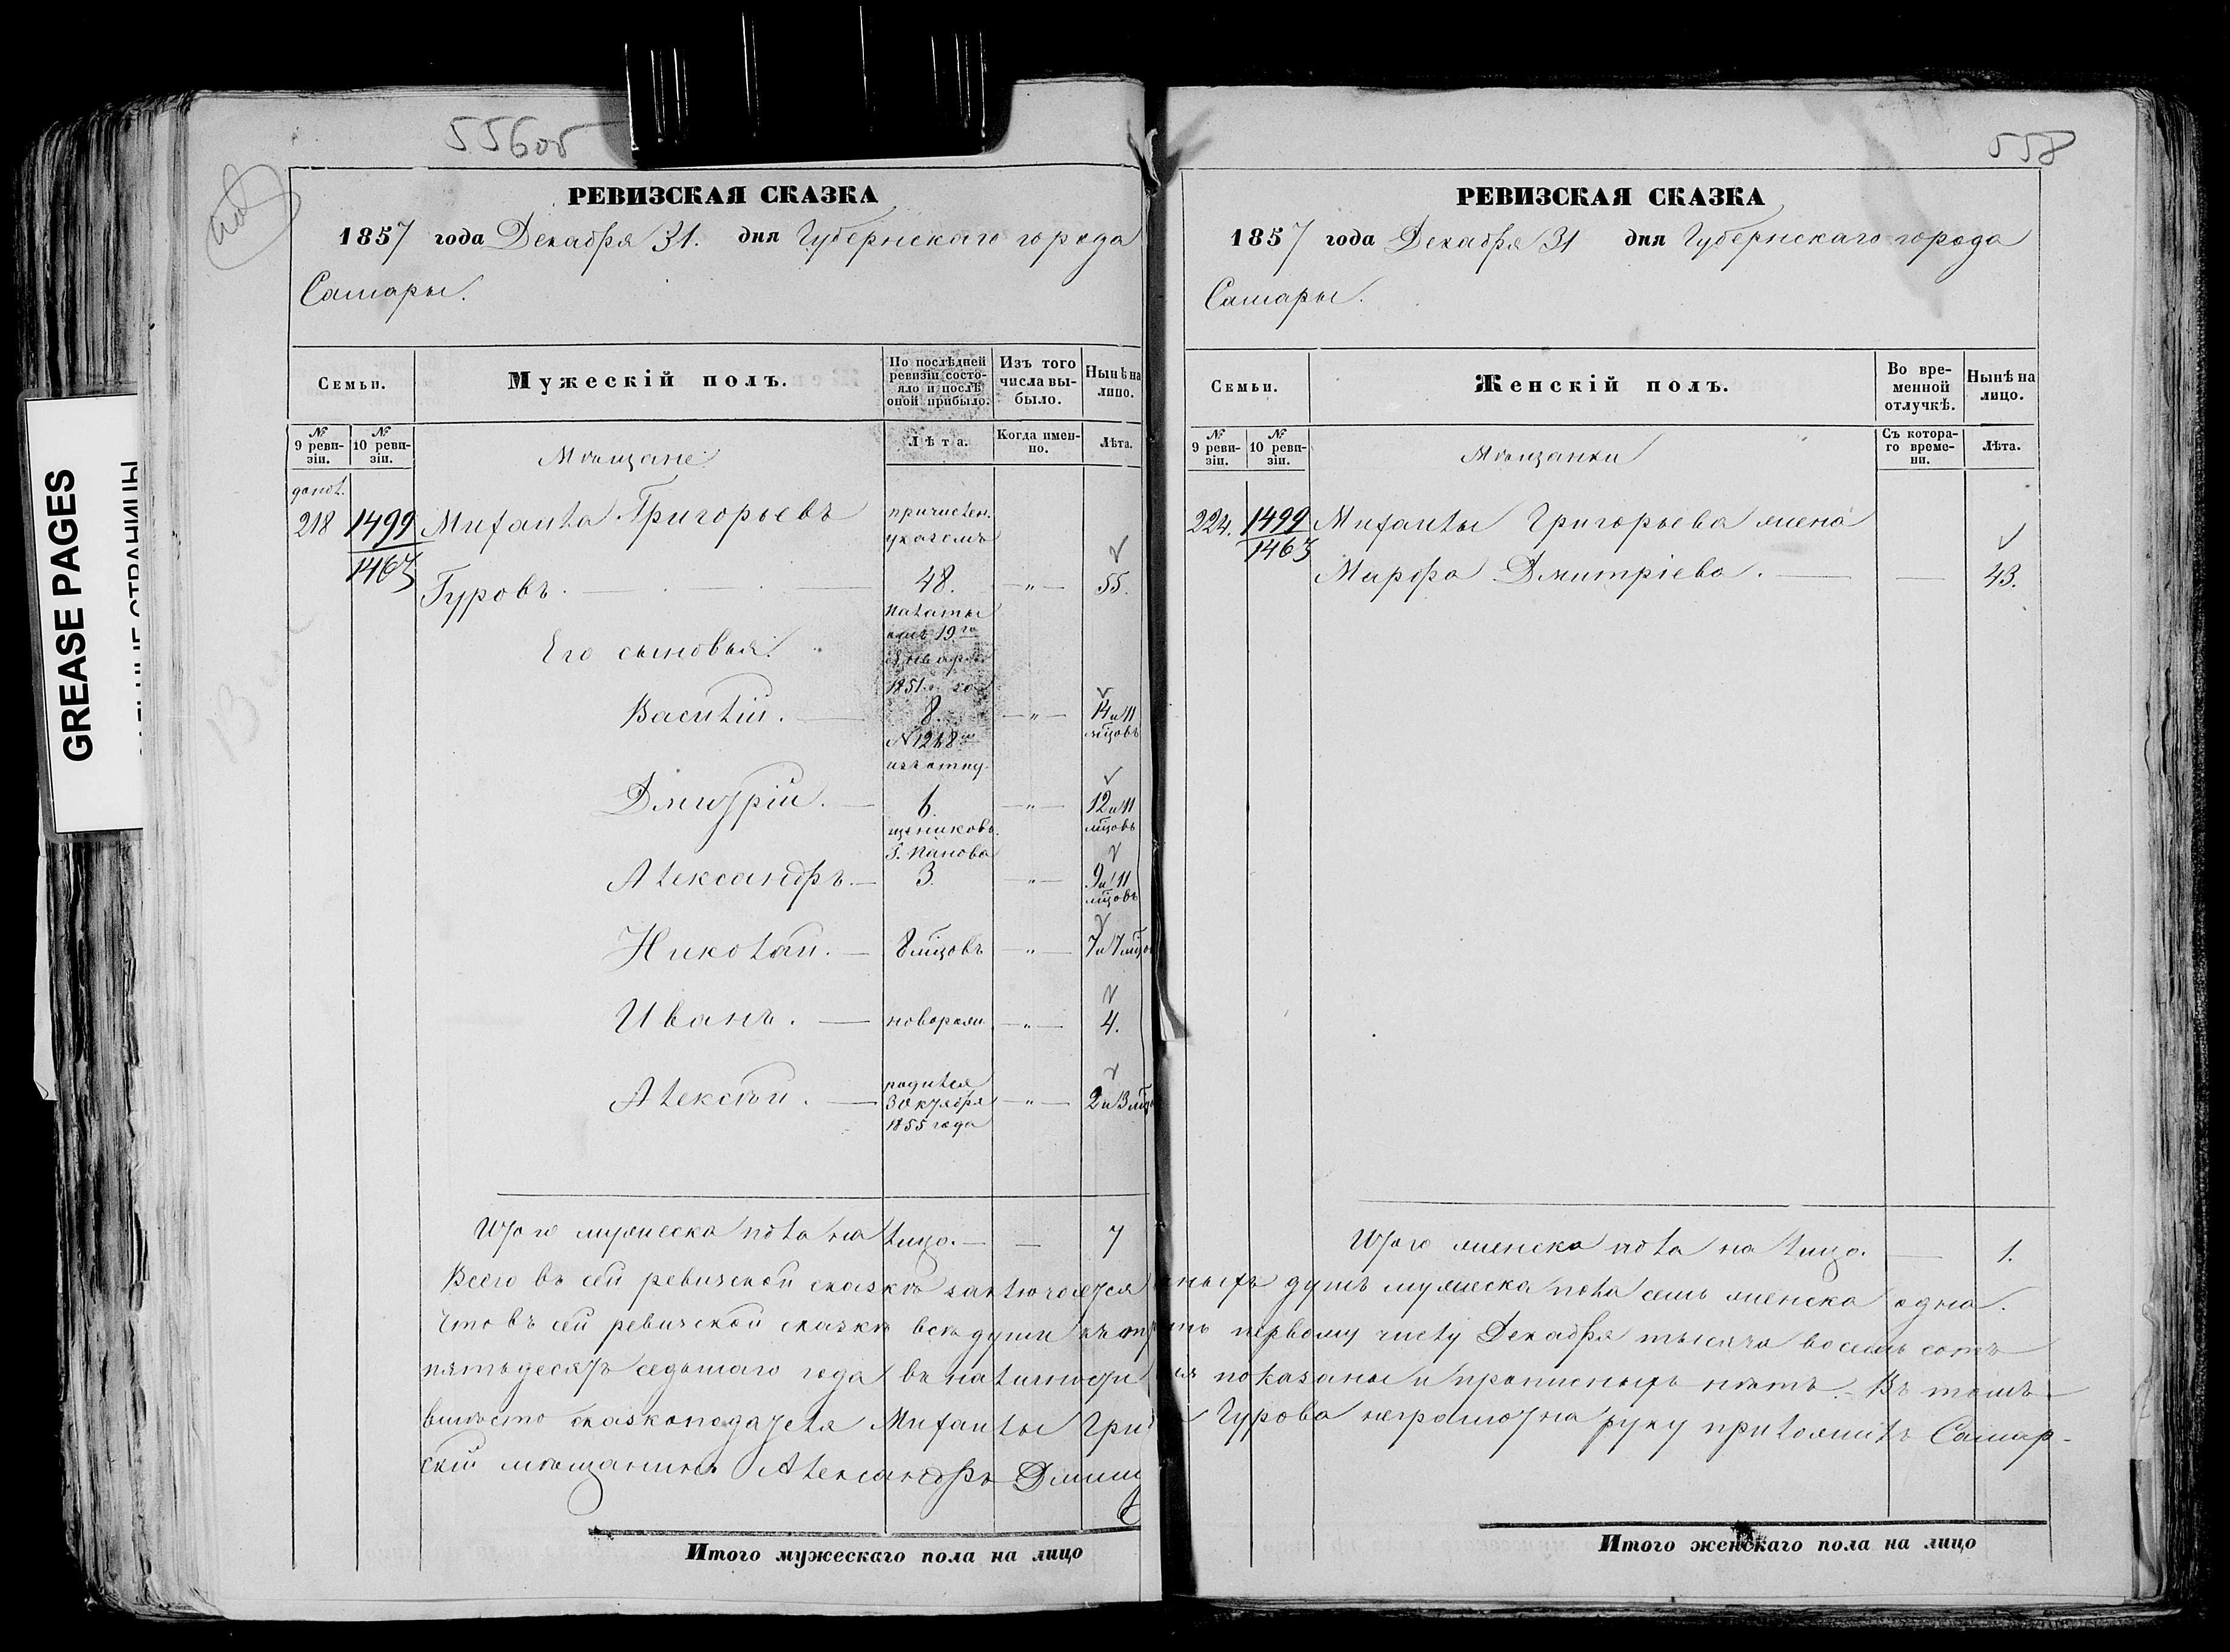 GREASE PAGES
556об
РЕВИЗСКАЯ СКАЗКА
1857 года Декабря 31. дня Губернскаго города
Самары.
Семьи.
Мужескій полъ.
По послѣдней ревизіи состояло и послѣ оной прибыло.
Изъ того числа выбыло.
Нынѣ на лицо.
№ 9 ревизіи.
№ 10 ревизіи.
Мѣщане
Лѣта.
Когда именно.
Лѣта.
допол.
218 1499 Михайла Григорьевъ причислен.
указомъ
1463 Гуровъ. 48. — „ — 55.
Палаты
отъ 19го
Его сыновья.
января
1851 го
Василій. — 8. — „ — 14 и 11 мцовъ
изъ отпу-
Дмитрій. — 6. — „ — 12 и 11 мцовъ
щениковъ
Г. Панова
Александръ. — 3. — „ — 9 и 11 мцовъ
Николай. — 8 мцовъ — „ — 7 и 7 мцов
Иванъ. — новорож. — „ — 4.
Алексѣй. — родился 3 октября 1855 года — „ — 2 и 3
Итого мужеска пола на лицо. — — 7
Всего въ сей ревизской сказкѣ заключается
Что въ сей ревизской сказкѣ всѣ души къ
пятьдесятъ седьмаго года въ наличности
вмѣсто сказкоподателя Михайлы Гри
скій мѣщанинъ Александръ Дмит
Итого мужескаго пола на лицо
558
РЕВИЗСКАЯ СКАЗКА
1857 года Декабря 31 дня Губернскаго города
Самары.
Семьи.
Женскій полъ.
Во временной отлучкѣ.
Нынѣ на лицо.
№ 9 ревизіи.
№ 10 ревизіи.
Мѣщанки
Съ котораго времени.
Лѣта.
224. 1499 Михайлы Григорьева жена
1463 Марфа Дмитріева. — — 43.
Итого женска пола на лицо. — 1.
ныхъ душъ мужеска пола семь женска одна.
первому числу Декабря тысяча восемь сотъ
показаны и прописныхъ нѣтъ. – Въ томъ
Гурова неграмотна руку приложилъ Самар-
Итого женскаго пола на лицо